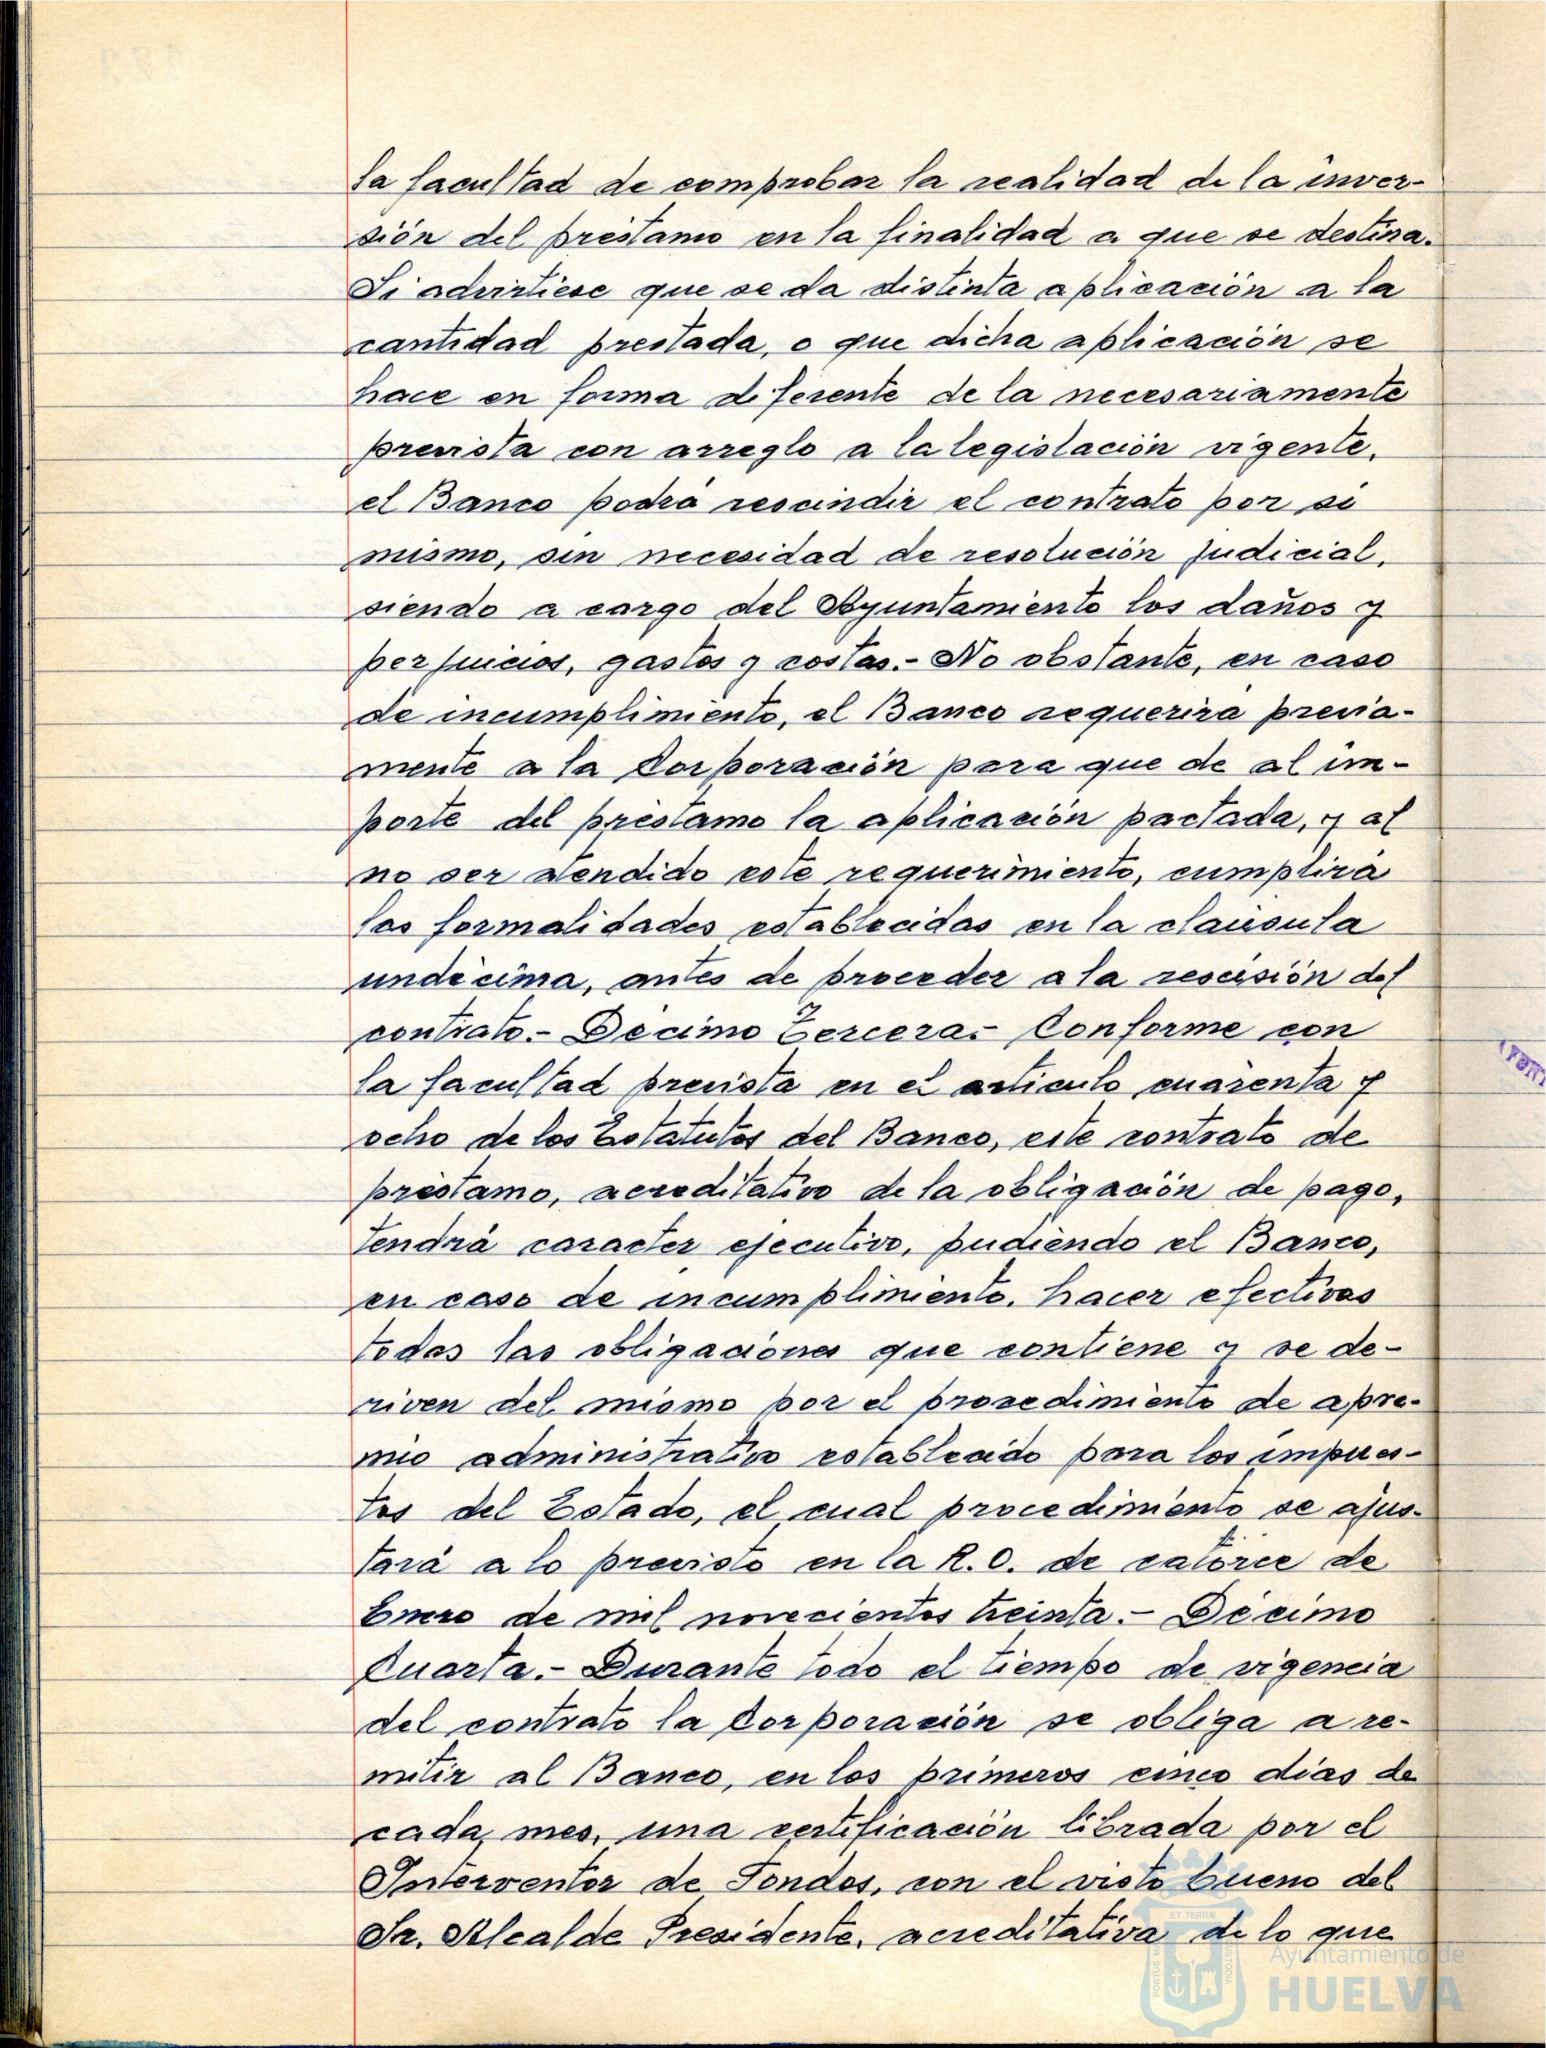 la facultad de comprobar la realidad de la inver-
sión del préstamo en la finalidad a que se destina.
Si advirtiese que se da distinta aplicación a la
cantidad prestada, o que dicha aplicación se
hace en forma diferente de la necesariamente
prevista con arreglo a la legislación vigente,
el Banco podrá rescindir el contrato por si
mismo, sin necesidad de resolución judicial,
siendo a cargo del Ayuntamiento los daños y
perjuicios, gastos y costas.- No obstante, en caso
de incumplimiento, el Banco requerirá previa-
mente a la Corporación para que de al im-
porte del préstamo la aplicación pactada, y al
no ser atendido este requerimiento, cumplirá
las formalidades establecidas en la claúsula
undécima, antes de proceder a la rescisión del
contrato.- Décimo Tercera.- Conforme con
la facultad prevista en el articulo cuarenta y
ocho de los Estatutos del Banco, este contrato de
préstamo, acreditativo de la obligación de pago,
tendrá caracter ejecutivo, pudiendo el Banco,
en caso de incumplimiento, hacer efectivas
todas las obligaciones que contiene y se de-
riven del mismo por el procedimiento de apre-
mio administrativo establecido para los impues-
tos del Estado, el cual procedimiento se ajus-
tará a lo previsto en la R.O. de catorce de
Enero de mil novecientos treinta.- Décimo
Cuarta.- Durante todo el tiempo de vigencia
del contrato la Corporación se obliga a re-
mitir al Banco, en los primeros cinco días de
cada mes, una certificación librada por el
Interventor de Fondos, con el visto bueno del
Sr. Alcalde Presidente, acreditativa de lo que
ET TERRÆ
PORTUS
CUSTODIA
Ayuntamiento de
HUELVA